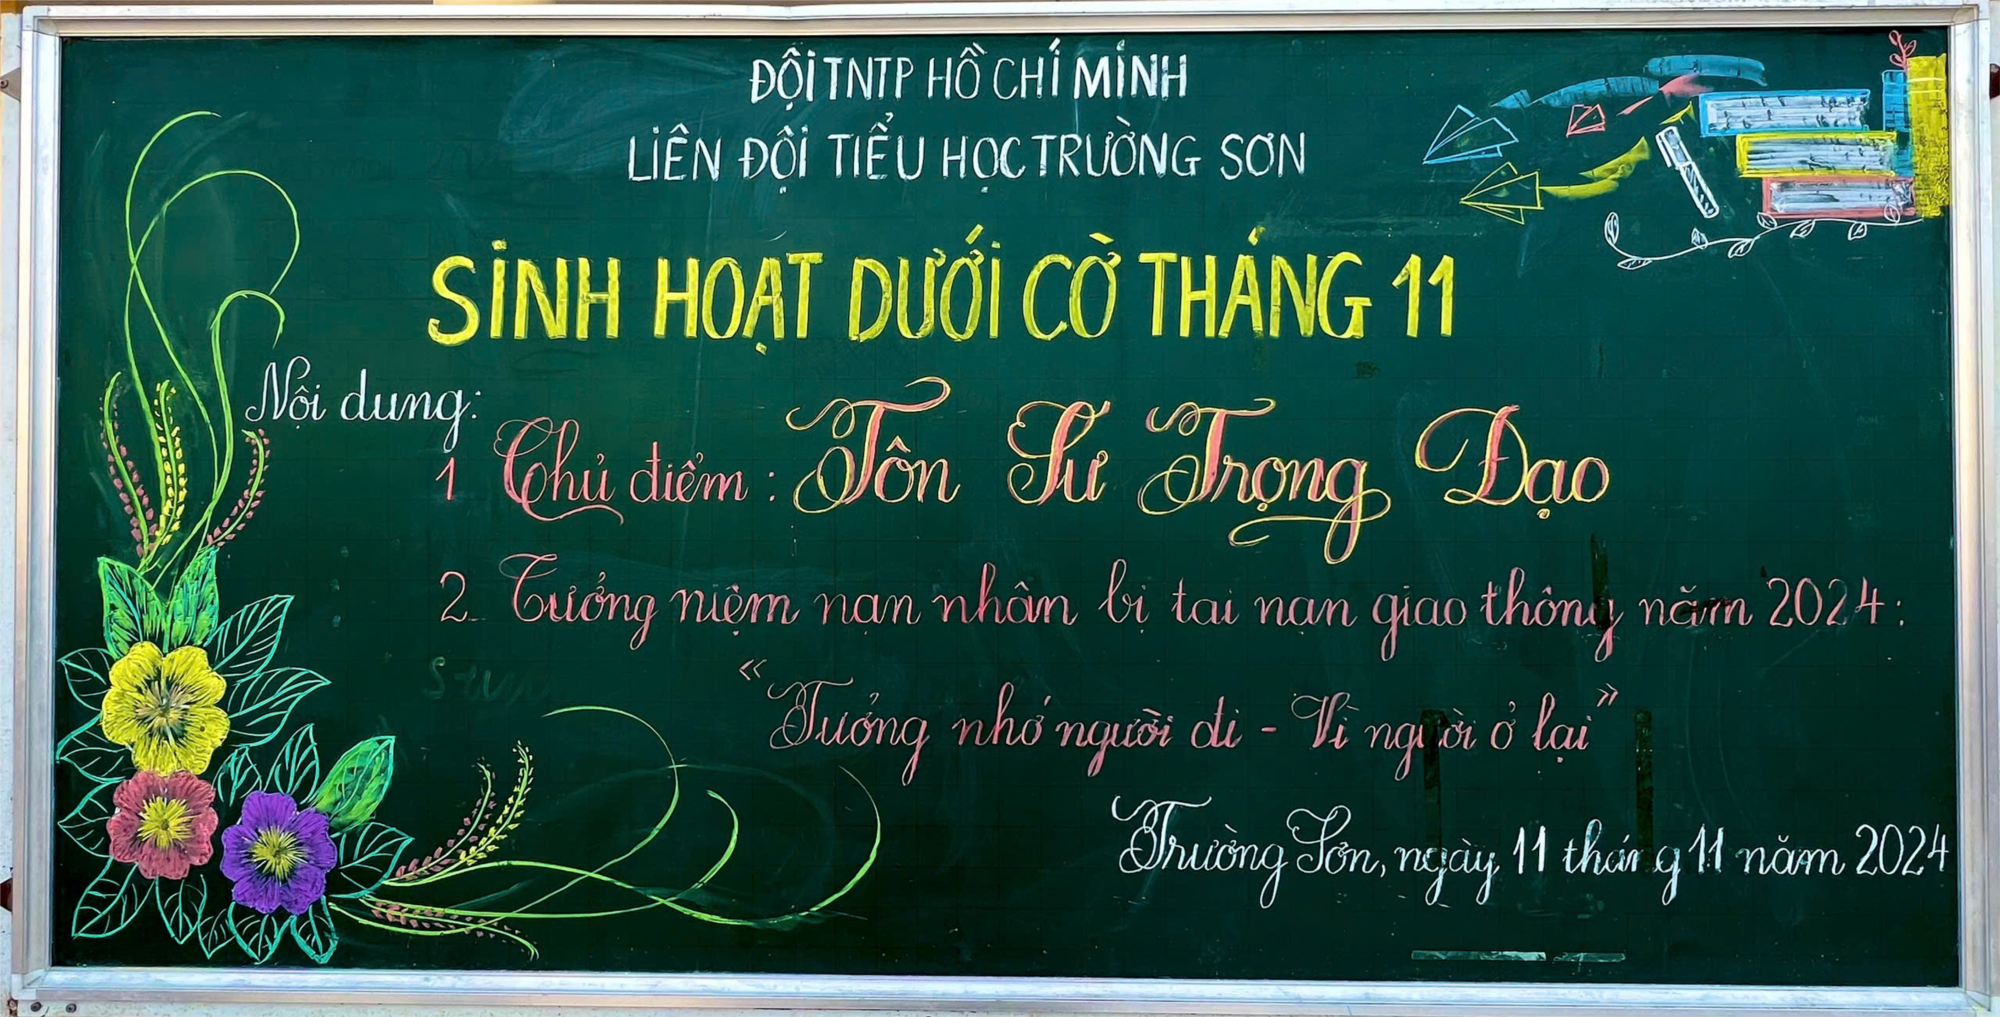 ĐỘI TNTP HỒ CHÍ MINH
LIÊN ĐỘI TIỂU HỌC TRƯỜNG SƠN
SINH HOẠT DƯỚI CỜ THÁNG 11
Nội dung:
1 Chủ điểm : Tôn Sư Trọng Đạo
2. Tưởng niệm nạn nhân bị tai nạn giao thông năm 2024 :
"Tưởng nhớ người đi - Vì người ở lại"
Trường Sơn, ngày 11 tháng 11 năm 2024